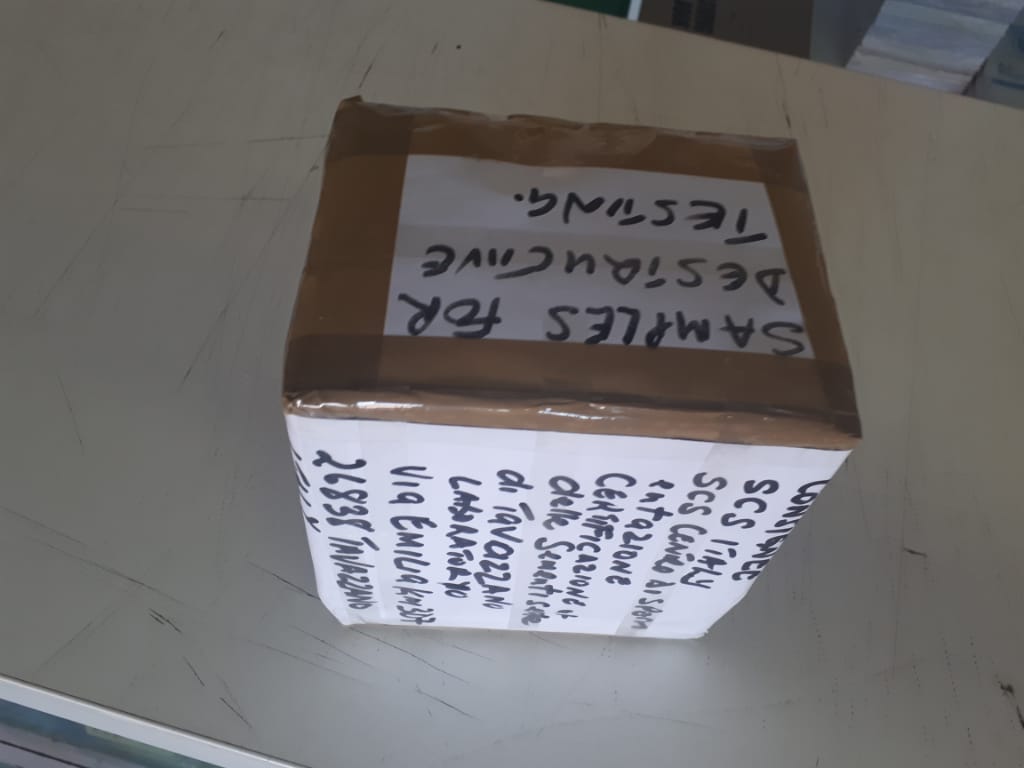 SAMPLES FOR
DESTRUCTIVE
TESTING.
CONSIGNEE
SCS ITALY
SCS Centro di Sperim
entazione
CERTIFICAZIONE
delle Sementi sede
di TAVAZZANO
LABORATORIO
VIA EMILIA
26838 TAVAZZANO